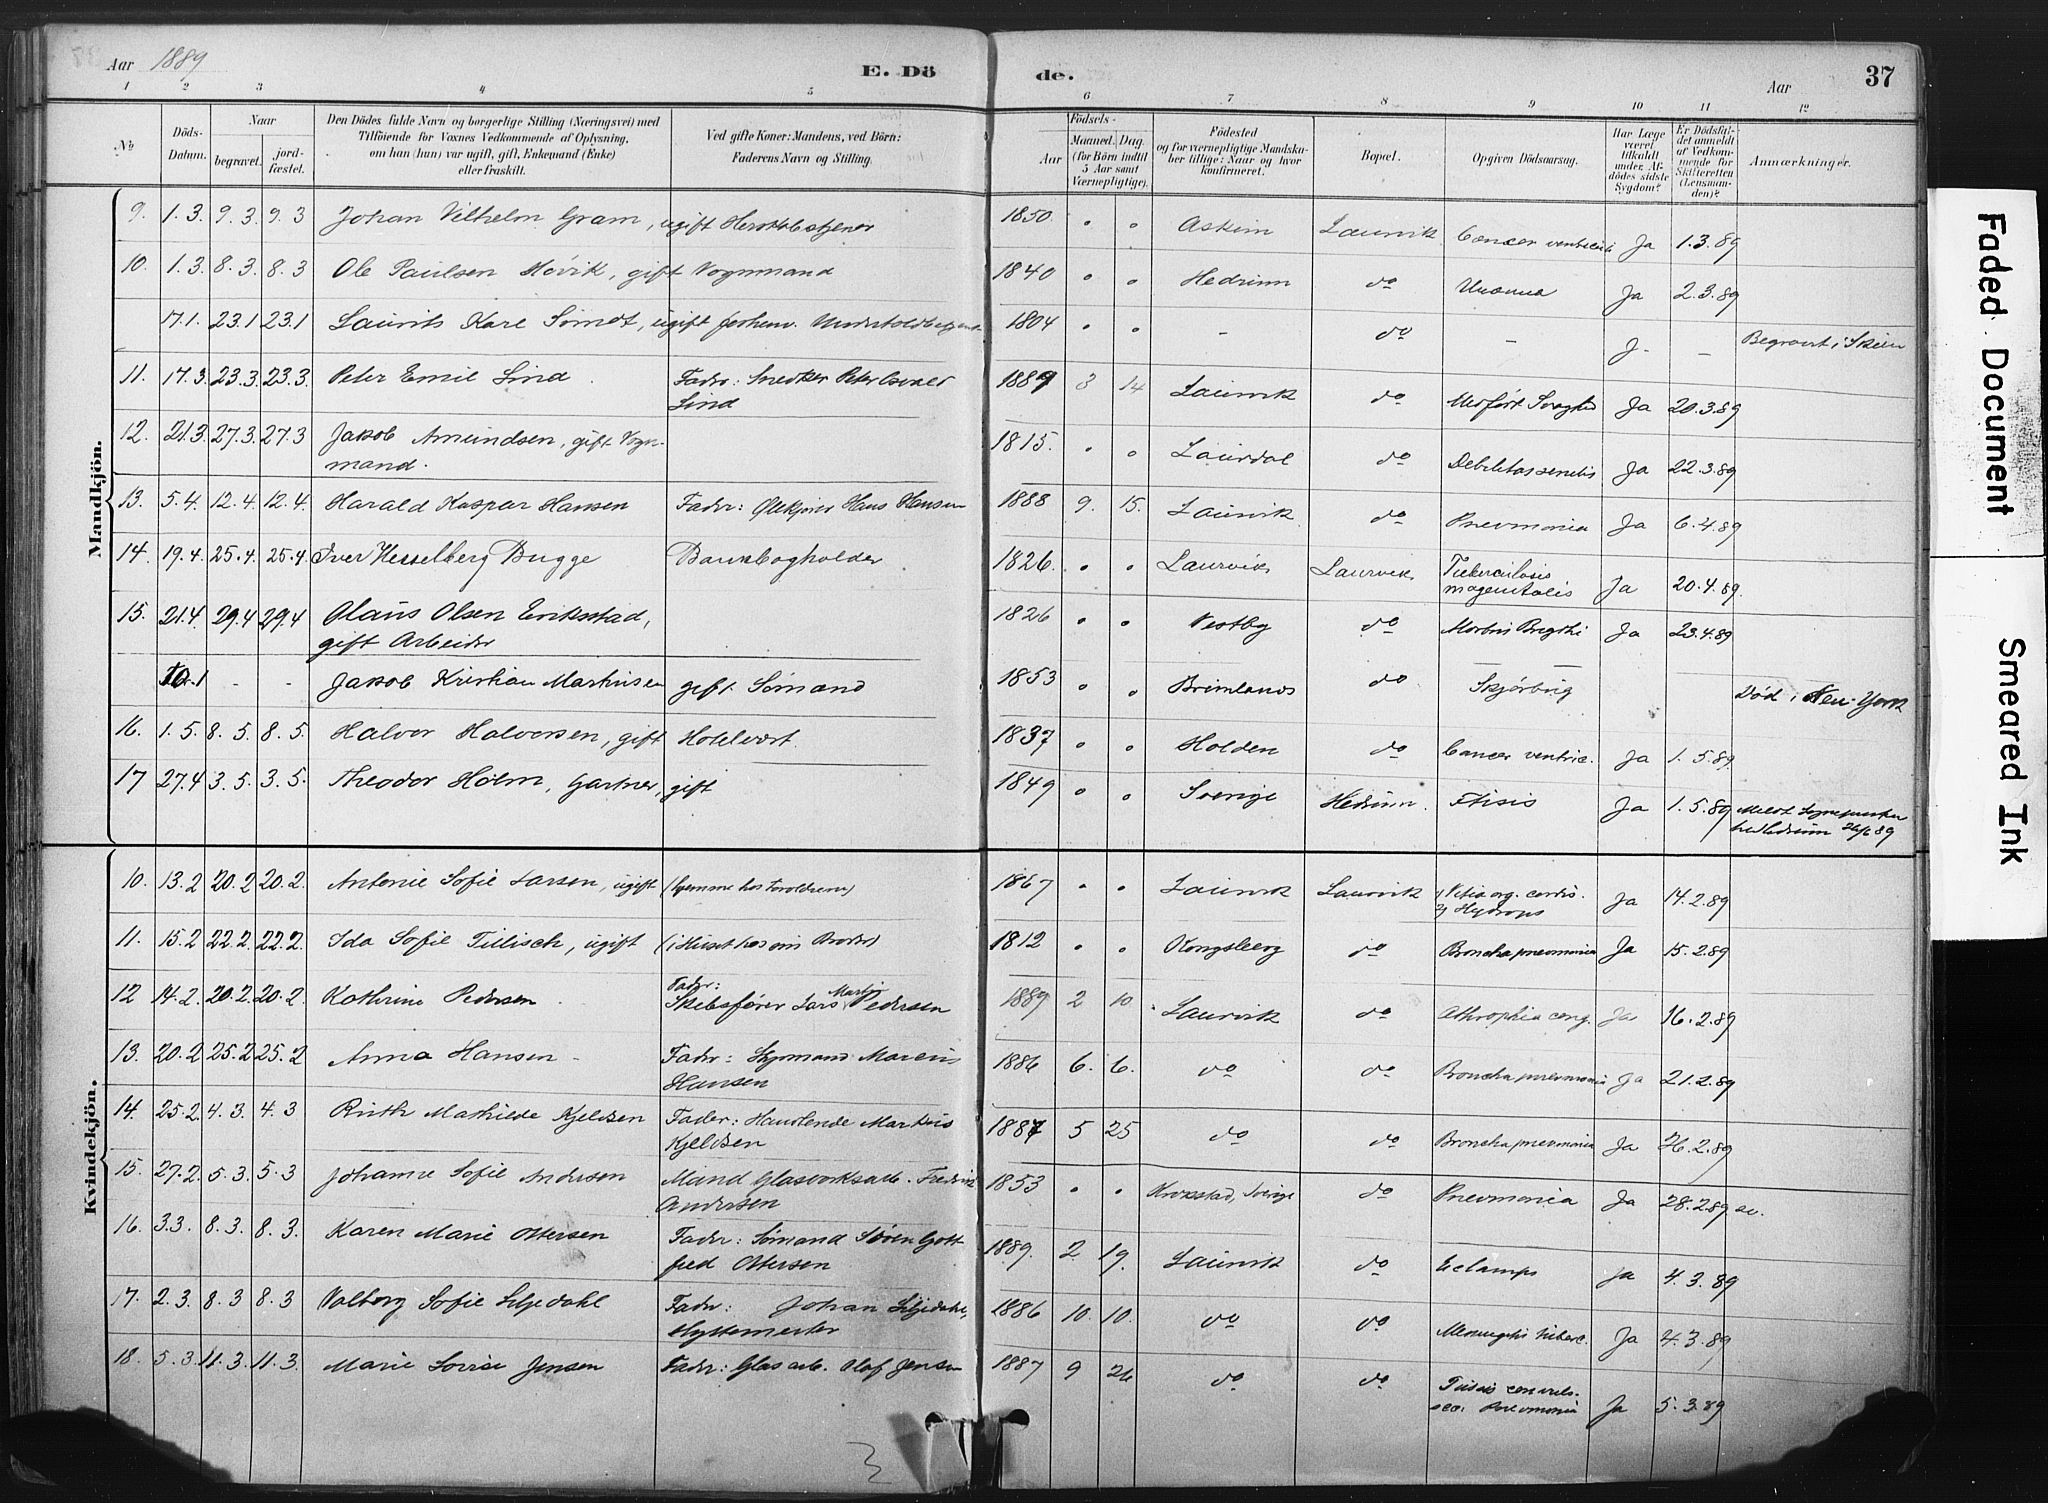 Aar 1889
E. Dö
de.
Aar
37
1 2 3 4 5 6 7 8 9 10 11 12
No
Döds-Datum.
Naar
begravet.
jordfæstet.
Den Dödes fulde Navn og borgerlige Stilling (Næringsvei) med
Tilföiende for Voxnes Vedkommende af Oplysning,
om han (hun) var ugift, gift, Enkemand (Enke)
eller fraskilt.
Ved gifte Koner: Mandens, ved Börn:
Faderens Navn og Stilling.
Födsels-
Aar
Maaned. Dag.
(for Börn indtil
5 Aar samt
Værnepligtige).
Födested
og for værnepligtige Mandskaber tillige: Naar og hvor
konfirmeret.
Bopæl.
Opgiven Dödsaarsag.
Har Læge
været
tilkaldt
under Afdödes sidste
Sygdom?
Er Dödsfaldet anmeldt
af Vedkommende for
Skifteretten
(Lensmanden)?
Anmærkninger.
Mandkjön.
9. 1.3. 9.3. 9.3 Johan Vilhelm Gram, ugift 1850. " " Askim Laurvik Cancer ventriculi Ja 1.3.89
10. 1.3. 8.3. 8.3 Ole Paulsen Hovik, gift Vognmand 1840 " " Hedrum do Uræmia Ja 2.3.89
17.1. 23.1 23.1 Laurits Kare ugift 1804 " " - do - J. - Begravet i Skien
11. 17.3. 23.3. 23.3. Peter Emil Lind. Fader: Snedker Peter Osvald
Lind 1889 3 14 Laurvik do Medfödt Svaghed Ja 20.3.89
12. 21.3. 27.3. 27.3 Jakob Amundsen, gift Vogn-
mand. 1815. " " Laurdal do Debilitas senilis Ja 22.3.89
13. 5.4. 12.4. 12.4. Harald Kaspar Hansen Fader: Ølkjører Hans Hansen 1888 9. 15. Laurvik do Pneumonia Ja 6.4.89
14. 19.4. 25.4. 25.4 Iver Hesselberg Bugge Bankbogholder 1826. " " Laurvik Laurvik Tuberculosis Ja 20.4.89.
15. 21.4. 29.4 29.4 Olaus Olsen Eriksstad,
gift Arbeider 1826 " " Vestby do Morbus Brigthi Ja 23.4.89
10.1 - - Jakob Kristian Martinsen gift Sømand 1853 " " Brunlanes do Skjørbug Død i New-York
16. 1.5. 8.5. 8.5. Halvor Halvorsen, gift Hotelvært. 1837 " " Holden do Cancer ventric. Ja 1.5.89.
17 27.4 3.5. 3.5. Theodor Holm, Gartner, gift 1849 " " Sverige Hedrum. Ftisis Ja 1.5.89 Meldt Sognepresten
Hedrum 89
Kvindekjön.
10. 13.2 20.2 20.2. Antonie Sofie Larsen, ugift (hjemme hos Forældrene) 1867 " " Laurvik Laurvik 1) Vitia org. cordis.
2) Hydrops Ja 14.2.89
11. 15.2 22.2. 22.2. Ida Sofie Tillisch, ugift (i Huset hos sin Broder) 1812 " " Kongsberg do Bronchopneumonia Ja 15.2.89
12 14.2. 20.2. 20.2. Kathrine Pedersen Fader:
Skibsfører Lars Martin Pedersen 1889 2 10 Laurvik do Athrophia cong. Ja 16.2.89
13. 20.2 25.2 25.2 Anna Hansen - Fader: Marcus
Hansen 1886 6. 6. do do Bronchopneumonia Ja 21.2.89
14. 25.2. 4.3. 4.3 Ruth Mathilde Kjeldsen Fader: Handlende Markus
Kjeldsen 1887 5 25 do do Bronchopneumonia Ja 26.2.89
15. 27.2. 5.3. 5.3 Johanne Sofie Andersen Mand Glasverksarb. Fredrik
Andersen 1853 " " Krokstad, Sverige do Pneumonia Ja 28.2.89
16. 3.3. 8.3. 8.3. Karen Marie Ottersen Fader: Sømand Søren Gott
fred Ottersen 1889. 2. 19. Laurvik do Eclamps Ja 4.3.89
17. 2.3. 8.3 8.3 Valborg Sofie Liljedahl Fader: Johan Liljedahl,
Hyttemester 1886 10. 10. do do Meningitis tuberc. Ja 4.3.89
18. 5.3. 11.3. 11.3. Marie Lovise Jensen Fader: Glasarb. Olaf Jensen 1887 9 26 do do Tussis convuls.
Pneumonia Ja 5.3.89
Faded Document
Smeared Ink